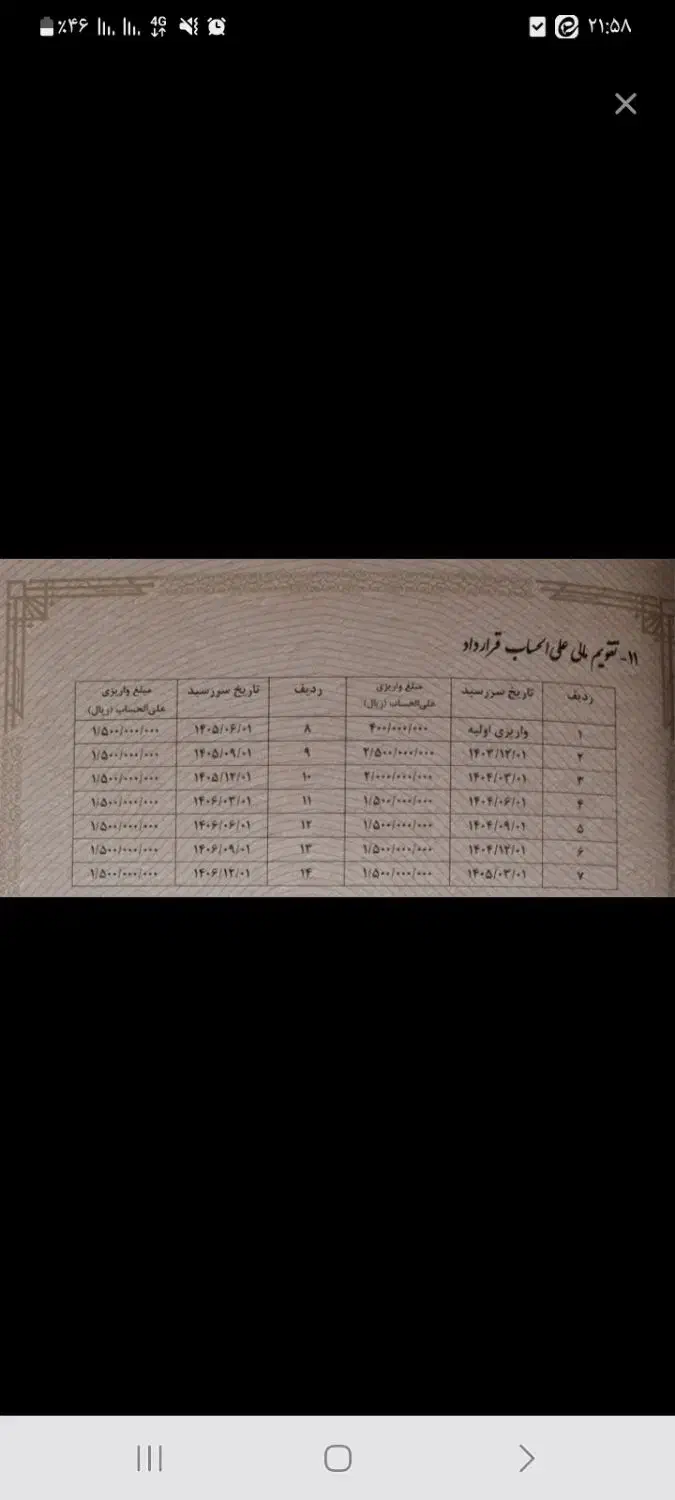 ٪۴۶ 4G ۲۱:۵۸
۱۱- تقویم مالی علی‌الحساب قرارداد
ردیف تاریخ سررسید مبلغ واریزی علی‌الحساب (ریال) ردیف تاریخ سررسید مبلغ واریزی علی‌الحساب (ریال)
۱ واریزی اولیه ۴۰۰/۰۰۰/۰۰۰ ۸ ۱۴۰۵/۰۶/۰۱ ۱/۵۰۰/۰۰۰/۰۰۰
۲ ۱۴۰۳/۱۲/۰۱ ۲/۵۰۰/۰۰۰/۰۰۰ ۹ ۱۴۰۵/۰۹/۰۱ ۱/۵۰۰/۰۰۰/۰۰۰
۳ ۱۴۰۴/۰۳/۰۱ ۲/۰۰۰/۰۰۰/۰۰۰ ۱۰ ۱۴۰۵/۱۲/۰۱ ۱/۵۰۰/۰۰۰/۰۰۰
۴ ۱۴۰۴/۰۶/۰۱ ۱/۵۰۰/۰۰۰/۰۰۰ ۱۱ ۱۴۰۶/۰۳/۰۱ ۱/۵۰۰/۰۰۰/۰۰۰
۵ ۱۴۰۴/۰۹/۰۱ ۱/۵۰۰/۰۰۰/۰۰۰ ۱۲ ۱۴۰۶/۰۶/۰۱ ۱/۵۰۰/۰۰۰/۰۰۰
۶ ۱۴۰۴/۱۲/۰۱ ۱/۵۰۰/۰۰۰/۰۰۰ ۱۳ ۱۴۰۶/۰۹/۰۱ ۱/۵۰۰/۰۰۰/۰۰۰
۷ ۱۴۰۵/۰۳/۰۱ ۱/۵۰۰/۰۰۰/۰۰۰ ۱۴ ۱۴۰۶/۱۲/۰۱ ۱/۵۰۰/۰۰۰/۰۰۰